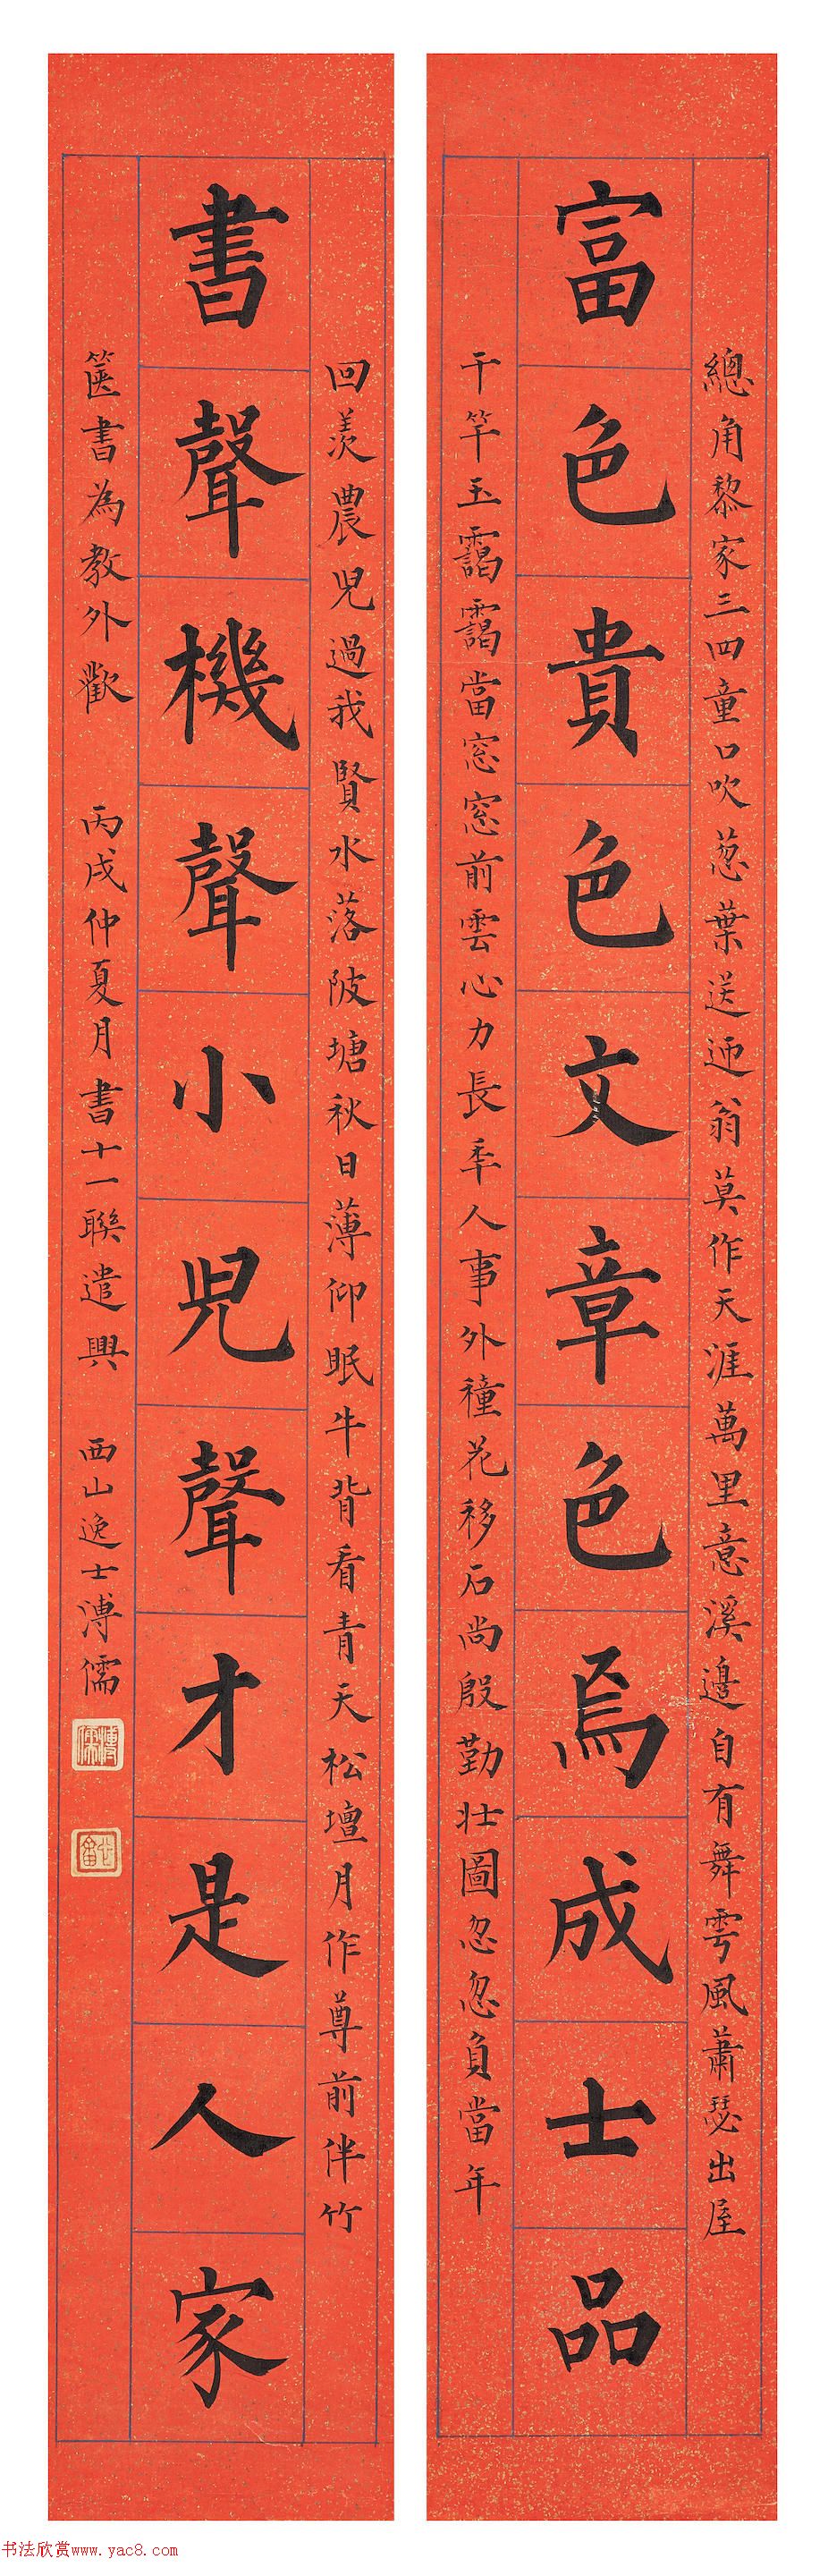 總角黎家三四童口吹葱葉送迊翁莫作天涯萬里意溪邉自有舞雩風蕭瑟出屋
富色貴色文章色焉成士品
千竿玉靄靄當窓窓前雲心力長年人事外種花移石尚殷勤壯圖忽忽負當年
回羨農兒過我賢水落陂塘秋日薄仰眠牛背看青天松壇月作尊前伴竹
書聲機聲小兒聲才是人家
篋書為教外歡 丙戌仲夏月書十一聯遣興 西山逸士溥儒
溥儒
心畬
书法欣赏www.yac8.com